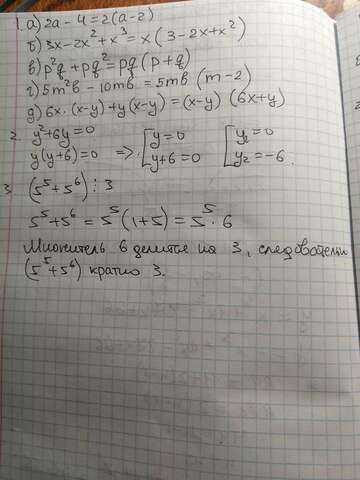 1. а) 2a - 4 = 2(a-2)
б) 3x - 2x² + x³ = x(3 - 2x + x²)
в) p²q + pq² = pq(p+q)
г) 5m²b - 10mb = 5mb(m-2)
д) 6x·(x-y) + y(x-y) = (x-y)(6x+y)
2. y² + 6y = 0
y(y+6) = 0 => [y=0 [y₁=0
[y+6=0 [y₂=-6.
3. (5⁵+5⁶) ⋮ 3
5⁵+5⁶ = 5⁵(1+5) = 5⁵·6
Множитель 6 делится на 3, следовательно
(5⁵+5⁶) кратно 3.